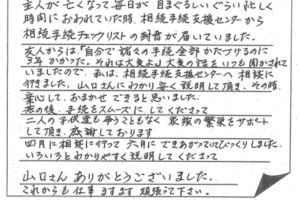 主人が亡くなって、毎日が目まぐるしいぐらい忙しく
時間におわれていた時、相続手続支援センターから
相続手続チェックリストの封書が届いていました。
友人からは「自分で諸々の手続全部かたづけるのに
3年かかった。それは大変よ大変の話をいつも聞かされて
いましたので、私は、相続支援センターへ相談に
行きました。山口さんにわかり安く説明して頂き、その時、
安心して、おまかせできると思いました。
その後、手続をスムーズにしてくださって
二人の子供達も争うこともなく家族の繁栄をサポート
して頂き、感謝しております
四月に相談に行って六月にできあがっていてびっくりしました。
いろいろとわかりやすく説明してくださって
山口さんありがとうございました。
これからも仕事ますます頑張って下さい。